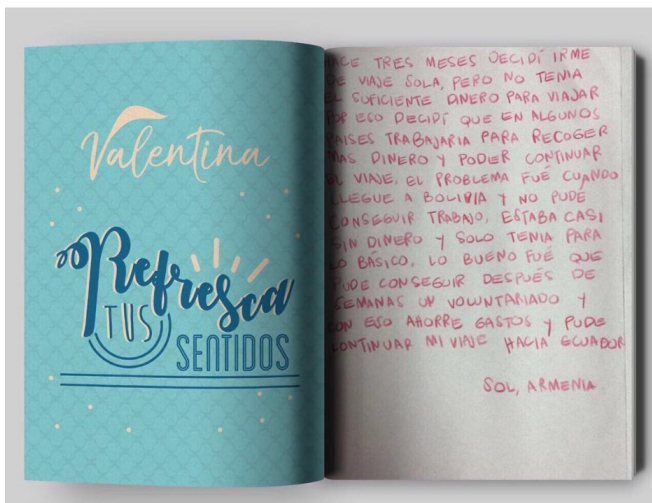 Valentina
Refresca
TUS
SENTIDOS
HACE TRES MESES DECIDÍ IRME
DE VIAJE SOLA, PERO NO TENIA
EL SUFICIENTE DINERO PARA VIAJAR
POR ESO DECIDÍ QUE EN ALGUNOS
PAISES TRABAJARIA PARA RECOGER
MAS DINERO Y PODER CONTINUAR
EL VIAJE, EL PROBLEMA FUÉ CUANDO
LLEGUE A BOLIVIA Y NO PUDE
CONSEGUIR TRABAJO, ESTABA CASI
SIN DINERO Y SOLO TENIA PARA
LO BÁSICO, LO BUENO FUÉ QUE
PUDE CONSEGUIR DESPUÉS DE
SEMANAS UN VOLUNTARIADO Y
CON ESO AHORRE GASTOS Y PUDE
CONTINUAR MI VIAJE HACIA ECUADOR
SOL, ARMENIA.